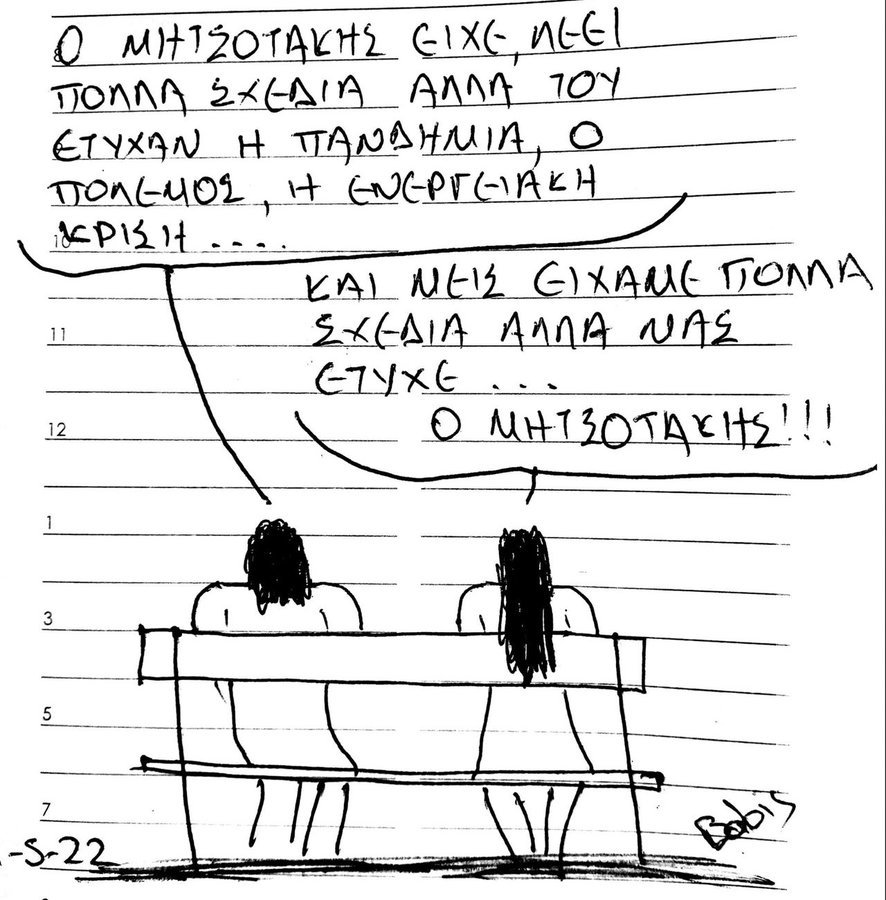 Ο ΜΗΤΣΟΤΑΚΗΣ ΕΙΧΕ, ΛΕΕΙ
ΠΟΛΛΑ ΣΧΕΔΙΑ ΑΛΛΑ ΤΟΥ
ΕΤΥΧΑΝ Η ΠΑΝΔΗΜΙΑ, Ο
ΠΟΛΕΜΟΣ, Η ΕΝΕΡΓΕΙΑΚΗ
10 ΚΡΙΣΗ ....
ΚΑΙ ΜΕΙΣ ΕΙΧΑΜΕ ΠΟΛΛΑ
11 ΣΧΕΔΙΑ ΑΛΛΑ ΜΑΣ
ΕΤΥΧΕ ...
12 Ο ΜΗΤΣΟΤΑΚΗΣ!!!
1
3
5
7
Babis
-5-22